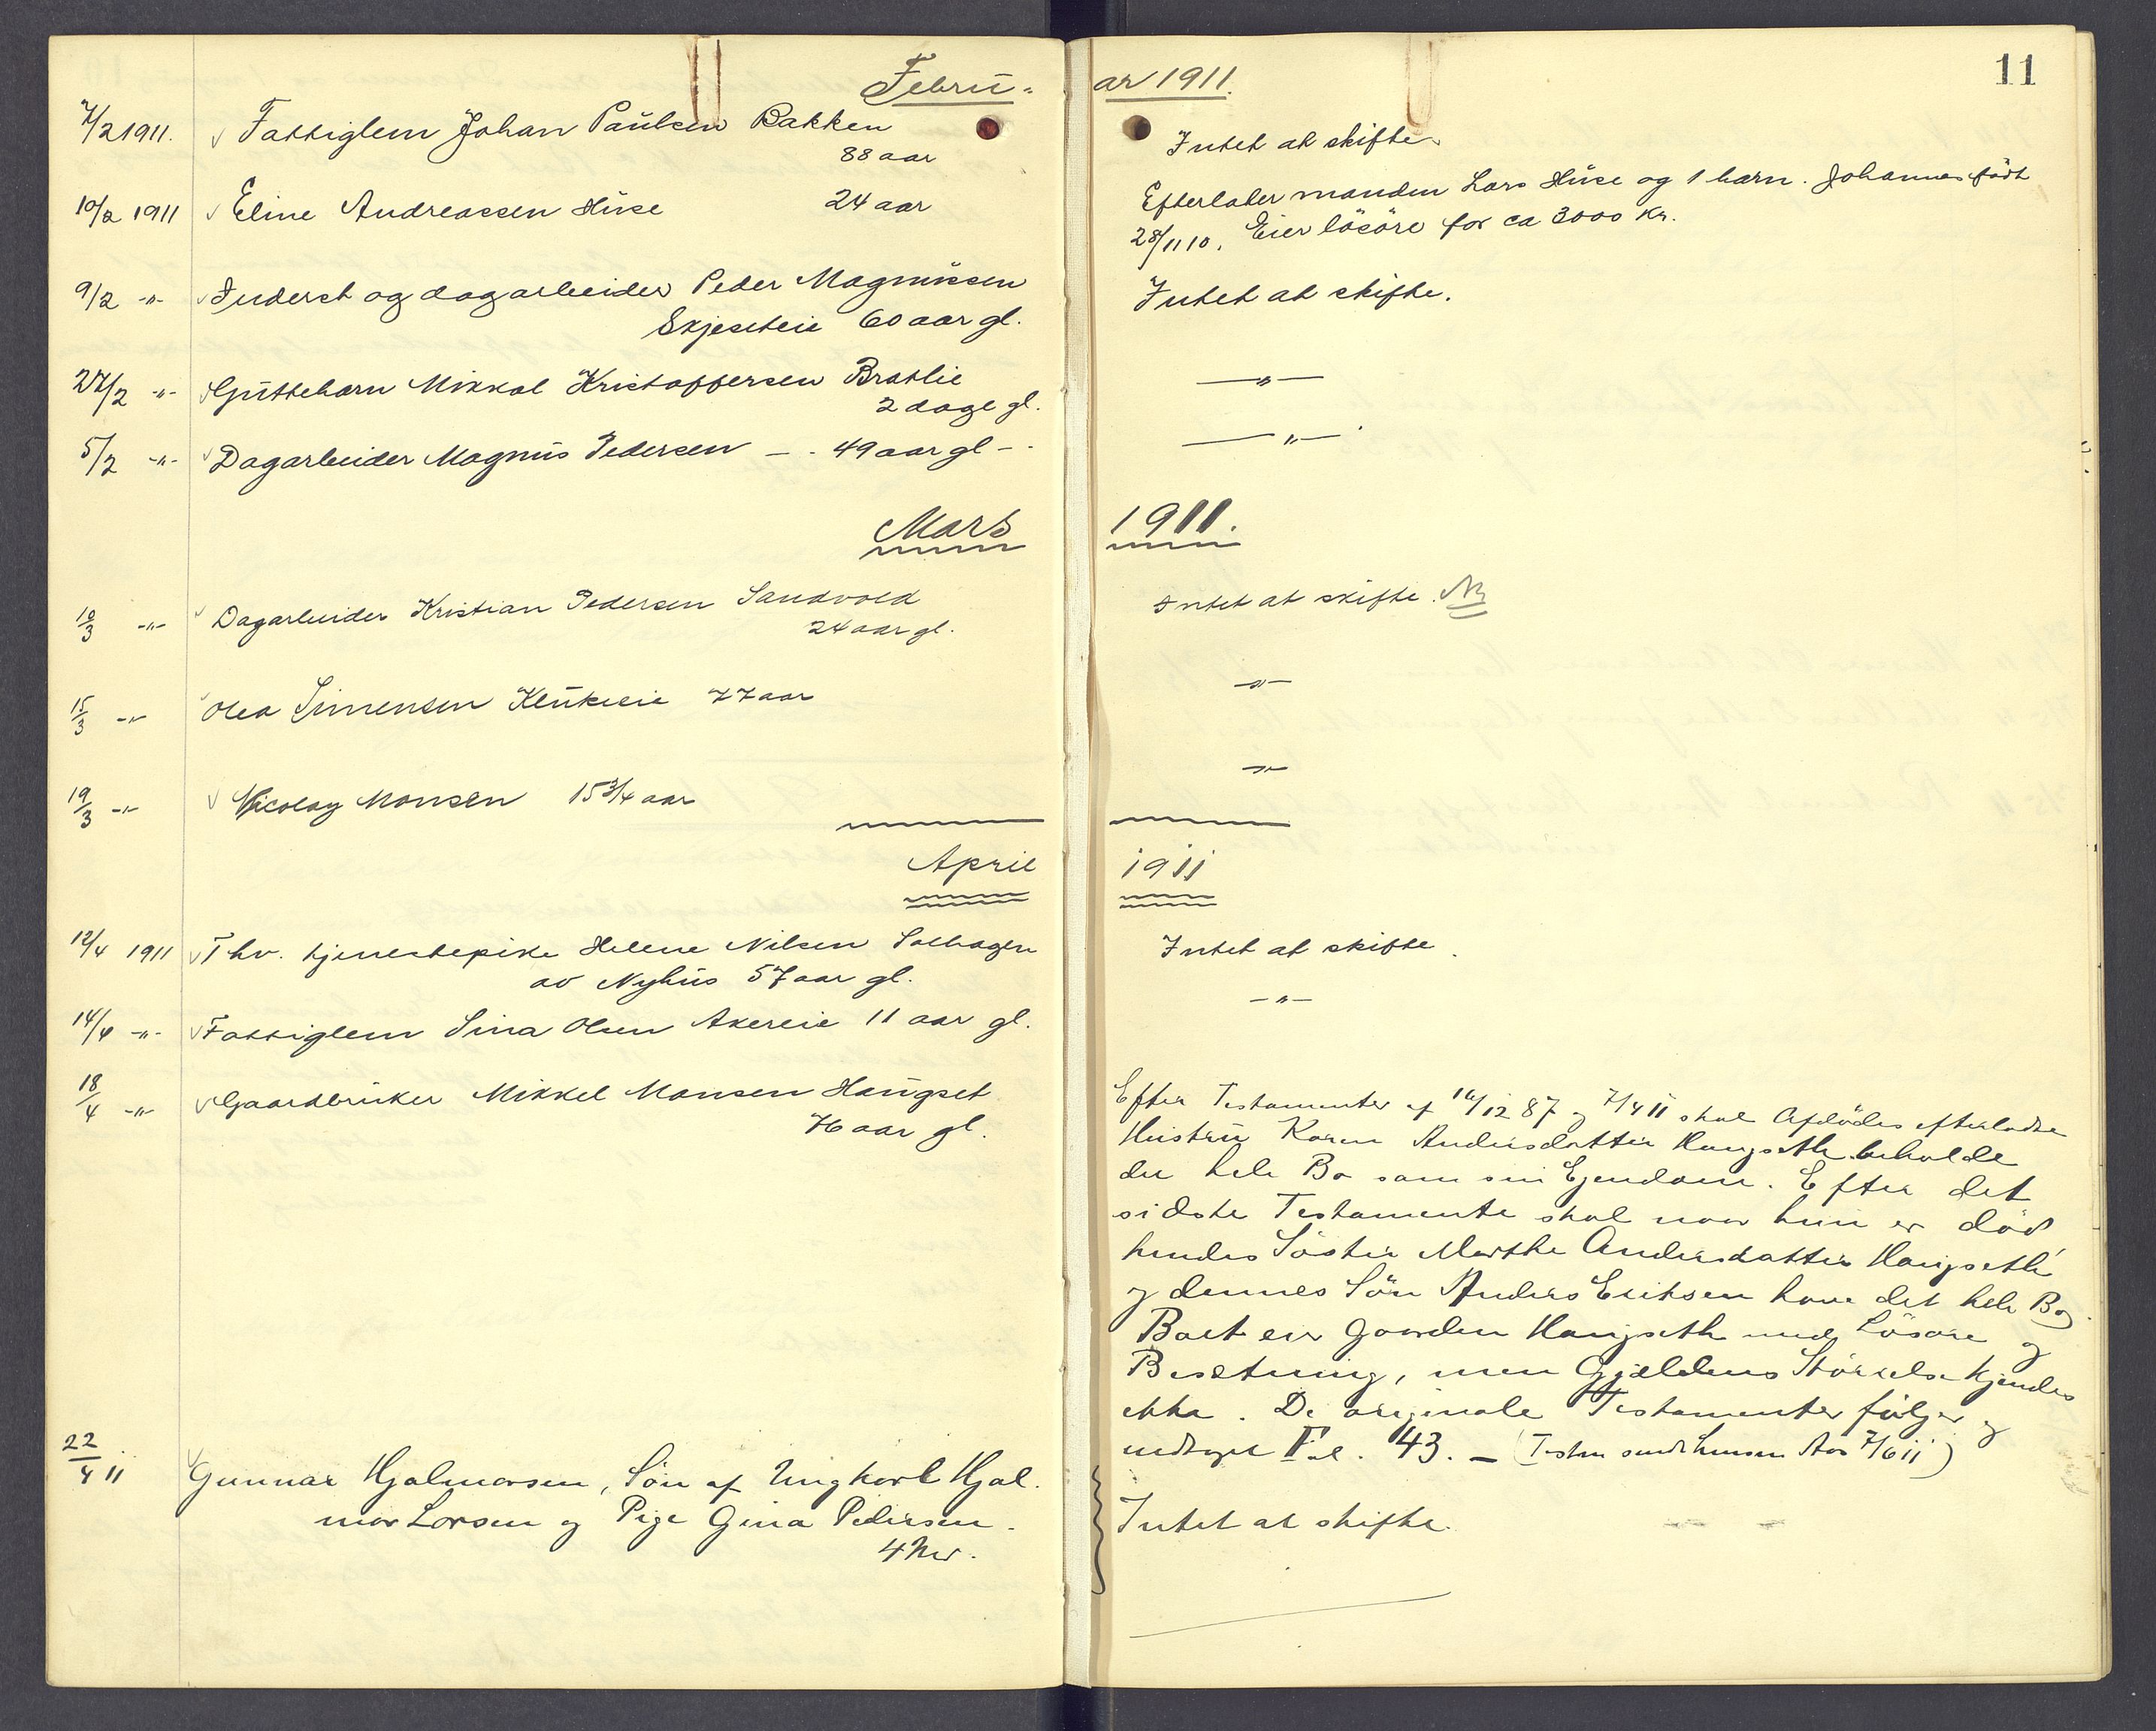 11
Febru-
ar 1911.
7/2 1911. Fattiglem Johan Paulsen Bakken
88 aar
Intet at skifte.
10/2 1911 Eline Andreassen Huse 24 aar
Efterlater manden Lars Huse og 1 barn. Johannes födt
28/11 10. Eier lösöre for ca 3000 Kr.
9/2 -"- Inderst og dagarbeider Peder Magnussen
Skjeseteie 60 aar gl.
Intet at skifte.
27/2 -"- Guttebarn Mikkal Kristoffersen Bratlie
2 dage gl.
-"-
5/2 -"- Dagarbeider Magnus Pedersen - - 49 aar gl - -
-"-
Mars
1911.
10/3 -"- Dagarbeider Kristian Pedersen Sandvold
24 aar gl.
Intet at skifte.
15/3 -"- Olea Simensen Klukeie 77 aar
-"-
19/3 -"- Nicolay Monsen 15 3/4 aar
-"-
April
1911
12/4 1911 Fhv. tjenestepike Helene Nilsen Solhagen
av Nyhus 57 aar gl.
Intet at skifte.
14/4 -"- Fattiglem Sina Olsen Akereie 11 aar gl.
-"-
18/4 -"- Gaardbruker Mikkel Monsen Haugset
76 aar gl.
Efter Testamenter af 14/12 87 og 7/4 11 skal Afdödes efterladte
Hustru Karen Andersdatter Haugseth beholde
det hele Bo som sin Ejendom. Efter det
sidste Testamente skal naar hun er död,
hendes Söster Marthe Andersdatter Haugseth
og dennes Sön Anders Eriksen have det hele Bo.
Boet eier Gaarden Haugseth med Lösöre og
Besetning, men Gjældens Störrelse kjendes
ikke. De originale Testamenter fölger og
indtaget Fol. 43. - (
7/6 11)
22/4 11 Gunnar Hjalmarsen, Sön af Ungkarl Hjal-
mar Larsen og Pige Gina Pedersen.
4 Mdr.
Intet at skifte.